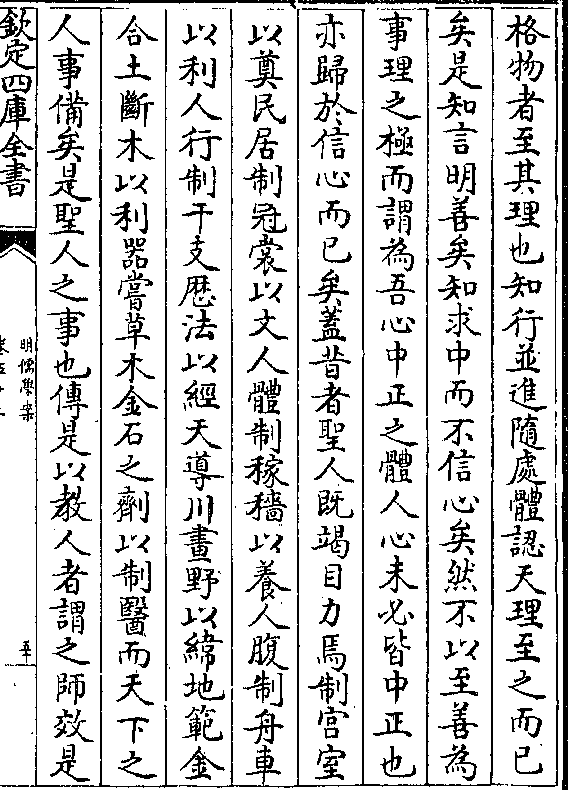 格物者至其理也知行並進隨處體認天理至之而已
矣是知言明善矣知求中而不信心矣然不以至善為
事理之極而謂為吾心中正之體人心未必皆中正也
亦歸於信心而已矣蓋昔者聖人既竭目力焉制宫室
以奠民居制冠裳以文人體制稼穡以養人腹制舟車
以利人行制干支厯法以經天導川畫野以緯地範金
合土斷木以利器嘗草木金石之劑以制醫而天下之
人事備矣是聖人之事也傳是以教人者謂之師效是
欽定四庫全書
明儒學案